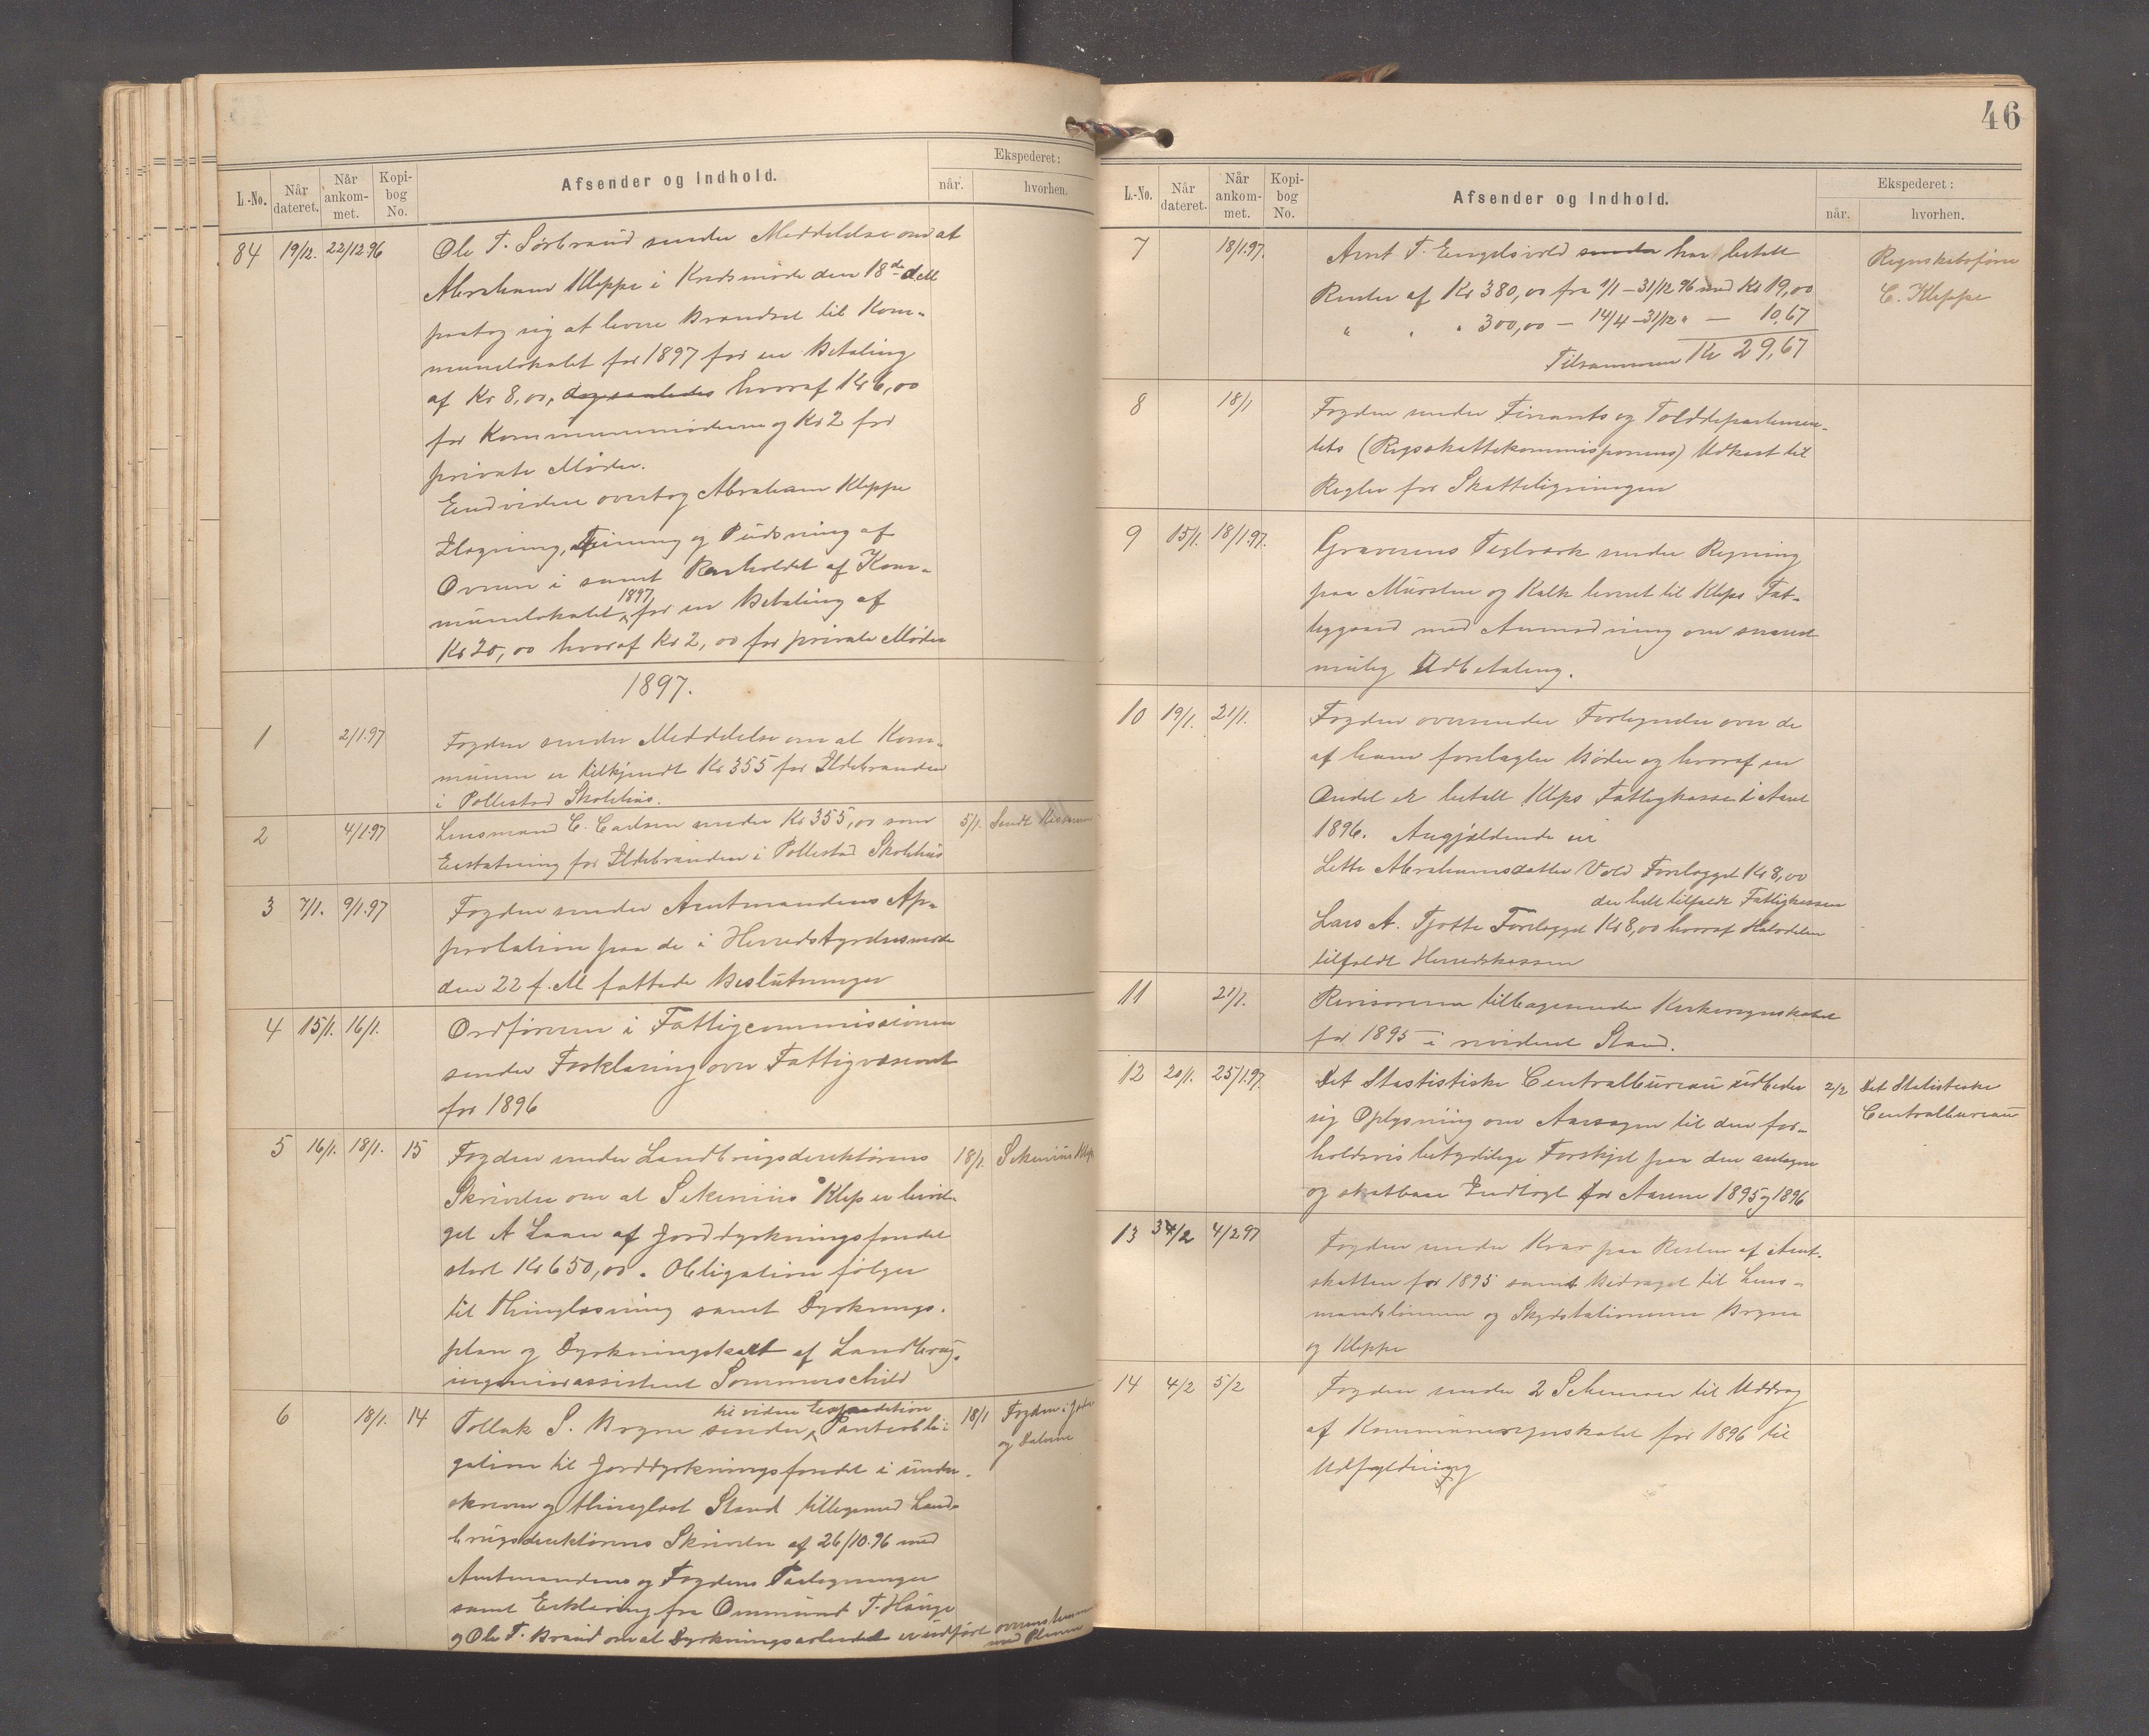 L.-No. Når dateret. Når ankom-met. Kopi-bog No. Afsender og Indhold. Ekspederet: når. hvorhen.
84 19/12. 22/12 96 Ole T. Sørbraud sender Meddelelse om at
Abraham Kleppe i Kredsmøde den 18de ds
paatog sig at levere Brændsel til Kom-
munelokalet for 1897 for en Betaling
af Kr 8,00, hvoraf Kr 6,00
for Kommunemøderne og Kr 2 for
private Møder.
Endvidere overtog Abraham Kleppe
Ilægning, Feining og Pudsning af
Ovnen i samt Renholdet af Kom-
munelokalet 1897 for en Betaling af
Kr 20,00 hvoraf Kr 2,00 for private Møder
1897.
1 2/1.97 Fogden sender Meddelelse om at Kom-
munen er tilkjendt Kr 355 for Ildebranden
i Pollestad Skolehus.
2 4/1.97 Lensmand C. Carlsen sender Kr 355,00 som 5/1. Sendt
Erstatning for Ildebranden i Pollestad Skolehus
3 7/1. 9/1.97 Fogden sender Amtmandens Ap-
probation paa de i Herredstyrelsesmøde
den 22 f. M fattede Beslutninger
4 15/1. 16/1. Ordføreren i Fattigcommissionen
sender Forklaring over Fattigvæsenet
for 1896
5 16/1. 18/1. 15 Fogden sender Landbrugsdirektørens 18/1. Sekenius Klep
Skrivelse om at Sekenius Klep er bevil-
get A Laan af Jorddyrkningsfondet
stort Kr 650,00. Obligation følger
til thinglæsning samt Dyrknings-
plan og Dyrkningskart af Landbrugs-
ingeniørassistent Sommerschild
6 18/1. 14 Tollak S. Bryne sender til videre Expedition Panteobli- 18/1 Fogden i Jæderen
gation til Jorddyrkningsfondet i under- og Dalerne
skreven og thinglæst Stand tilligemed Land-
brugsdirektørens Skrivelse af 26/10.96 med
Amtmandens og Fogdens Paategninger
samt Erklæring fra Ommund T. Hauge
og Ole T. Braud om at Dyrkningsarbeidet er udført overensstemmende
med Planen
46
L.-No. Når dateret. Når ankom-met. Kopi-bog No. Afsender og Indhold. Ekspederet: når. hvorhen.
7 18/1.97. Arnt T. Engelsvold sender har betalt Regnskabsfører
Renter af Kr 380,00 fra 1/1 – 31/12 96 med Kr 19,00 C. Kleppe
" " " 300,00 – 14/4 – 31/12 " — 10,67
Tilsammen Kr 29,67
8 18/1 Fogden sender Finants og Tolddepartemen-
tets (Rigsskattekommissionens) Udkast til
Regler for Skatteligningen
9 15/1. 18/1.97. Graverens Teglværk sender Regning
paa Mursten og Kalk leveret til Kleps Fat-
tiggaard med Anmodning om snarest
mulig Udbetaling.
10 19/1. 21/1. Fogden oversender Fortegnelse over de
af ham forelagte Bøder og hvoraf en
Andel er betalt Kleps Fattigkasse i Aaret
1896. Angjældende er
Lette Abrahamsdatter Vold Forelægget Kr 8,00
der helt tilfaldt Fattigkassen
Lars A. Tjøtta Forelægget Kr 8,00 hvoraf Halvdelen
tilfaldt Herredskassen
11 21/1. Revisorerne tilbagesender Kirkeregnskabet
for 1895 i revideret Stand.
12 20/1. 25/1.97. Det Stastistiske Centralbureau udbeder 2/2 Det Statistiske
sig Oplysning om Aarsagen til den for- Centralbureau
holdsvis betydelige Forskjel paa den antagne
og skatbare Indtægt for Aarene 1895 og 1896
13 34/2 4/2 97 Fogden sender Krav paa Resten af Amt-
skatten for 1895 samt Bidraget til Lens-
mandslønnen og Skydsstationerne Bryne
og Kleppe
14 4/2 5/2 Fogden sender 2 Schemaer til Uddrag
af Kommuneregnskabet for 1896 til
Udfyldning